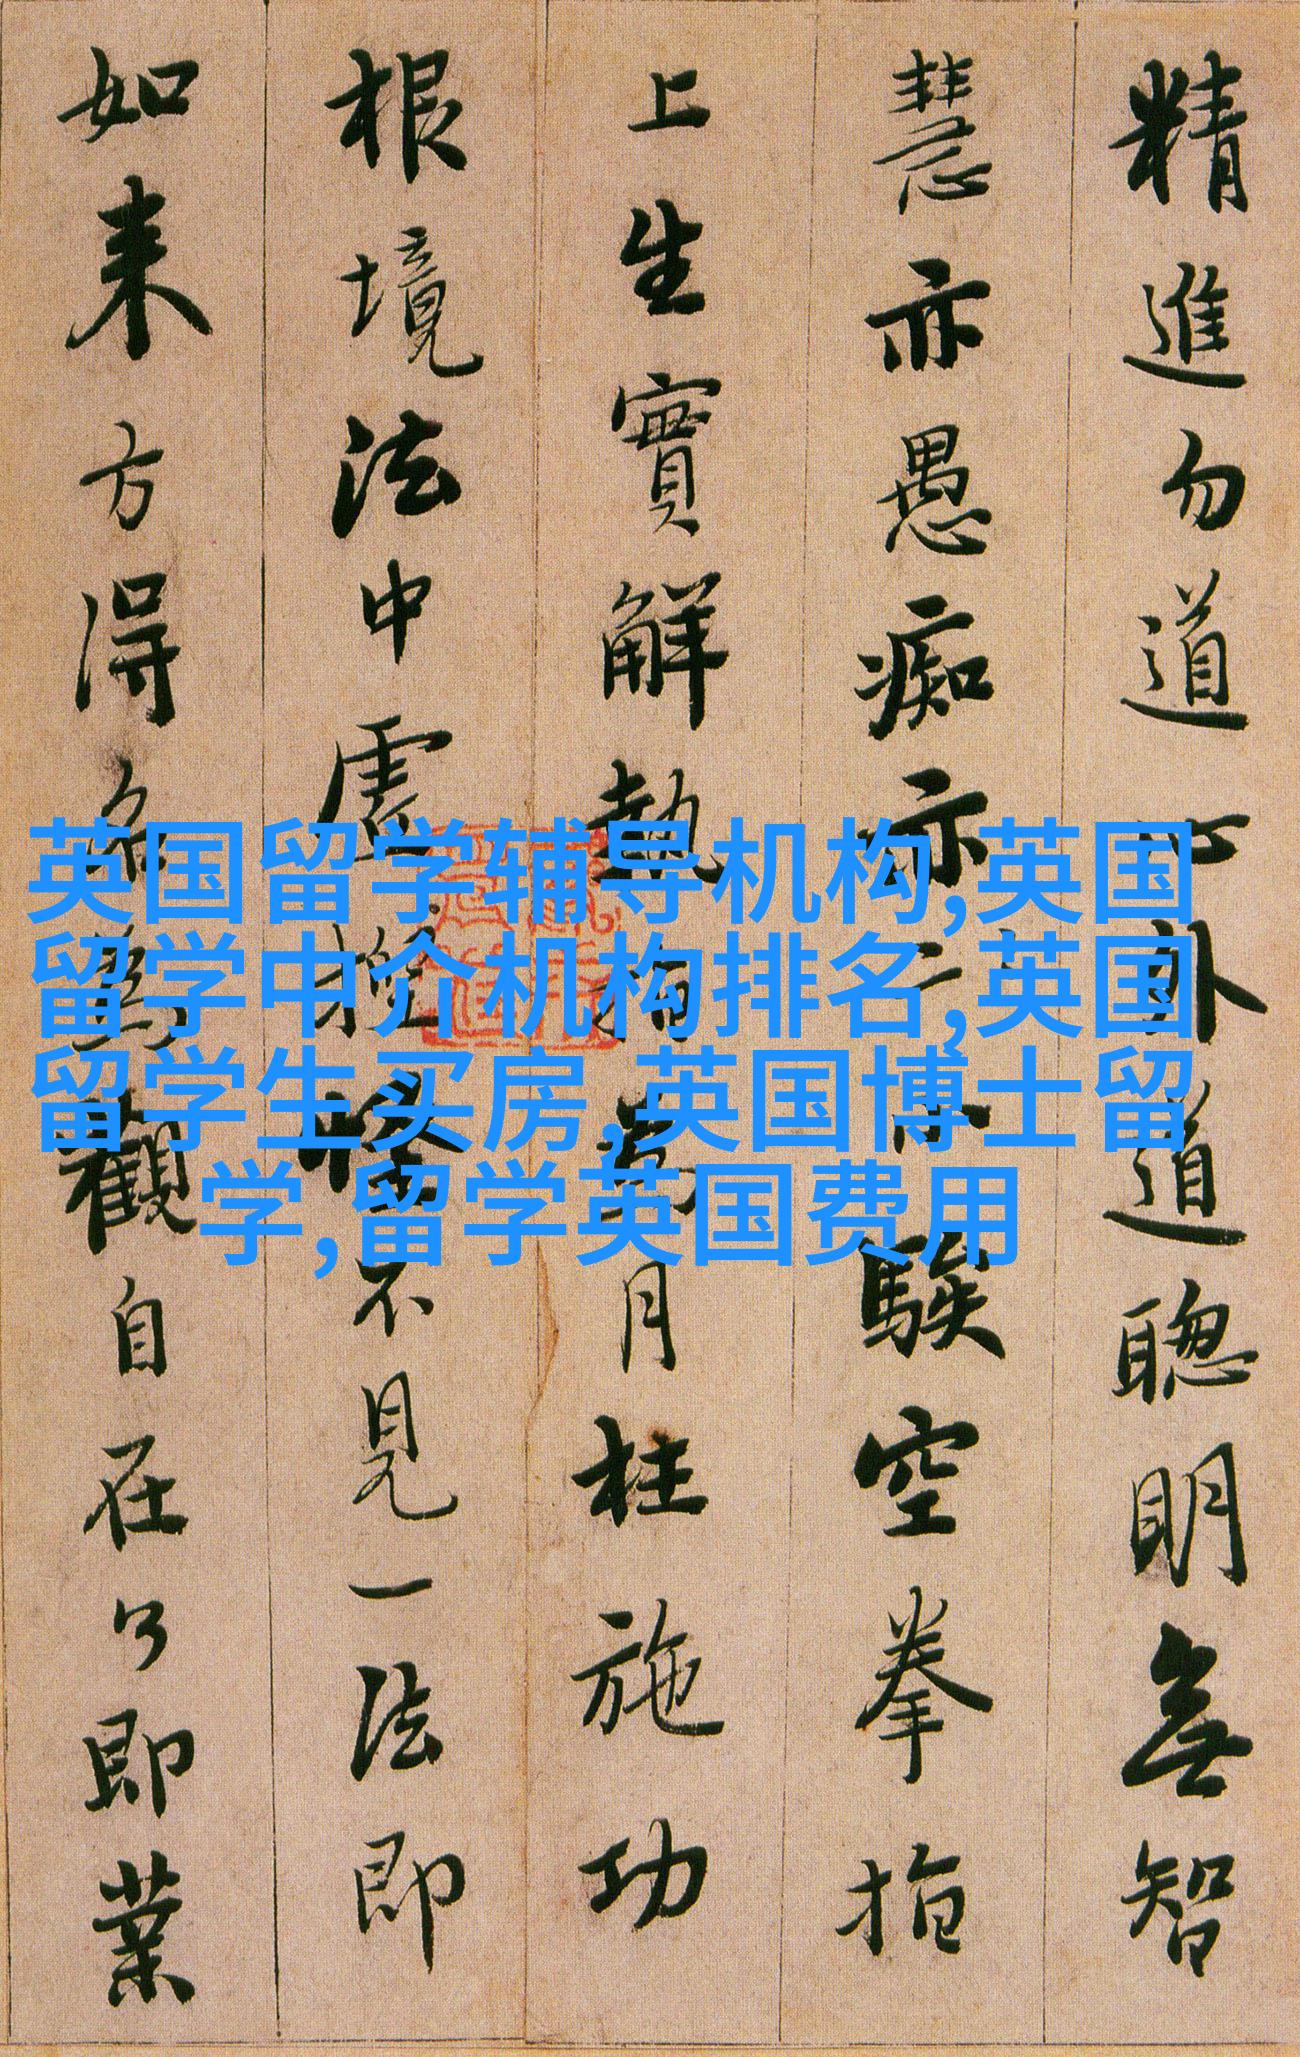 精進勿道心外道聰明無智
慧亦愚痴亦小騃空拳指
上生實解執指為月枉施功
根境法中虛捏怪不見一法即
如来方得名為觀自在了即業
英国留学辅导机构,英国
留学中介机构排名,英国
留学生买房,英国博士留
学,留学英国费用